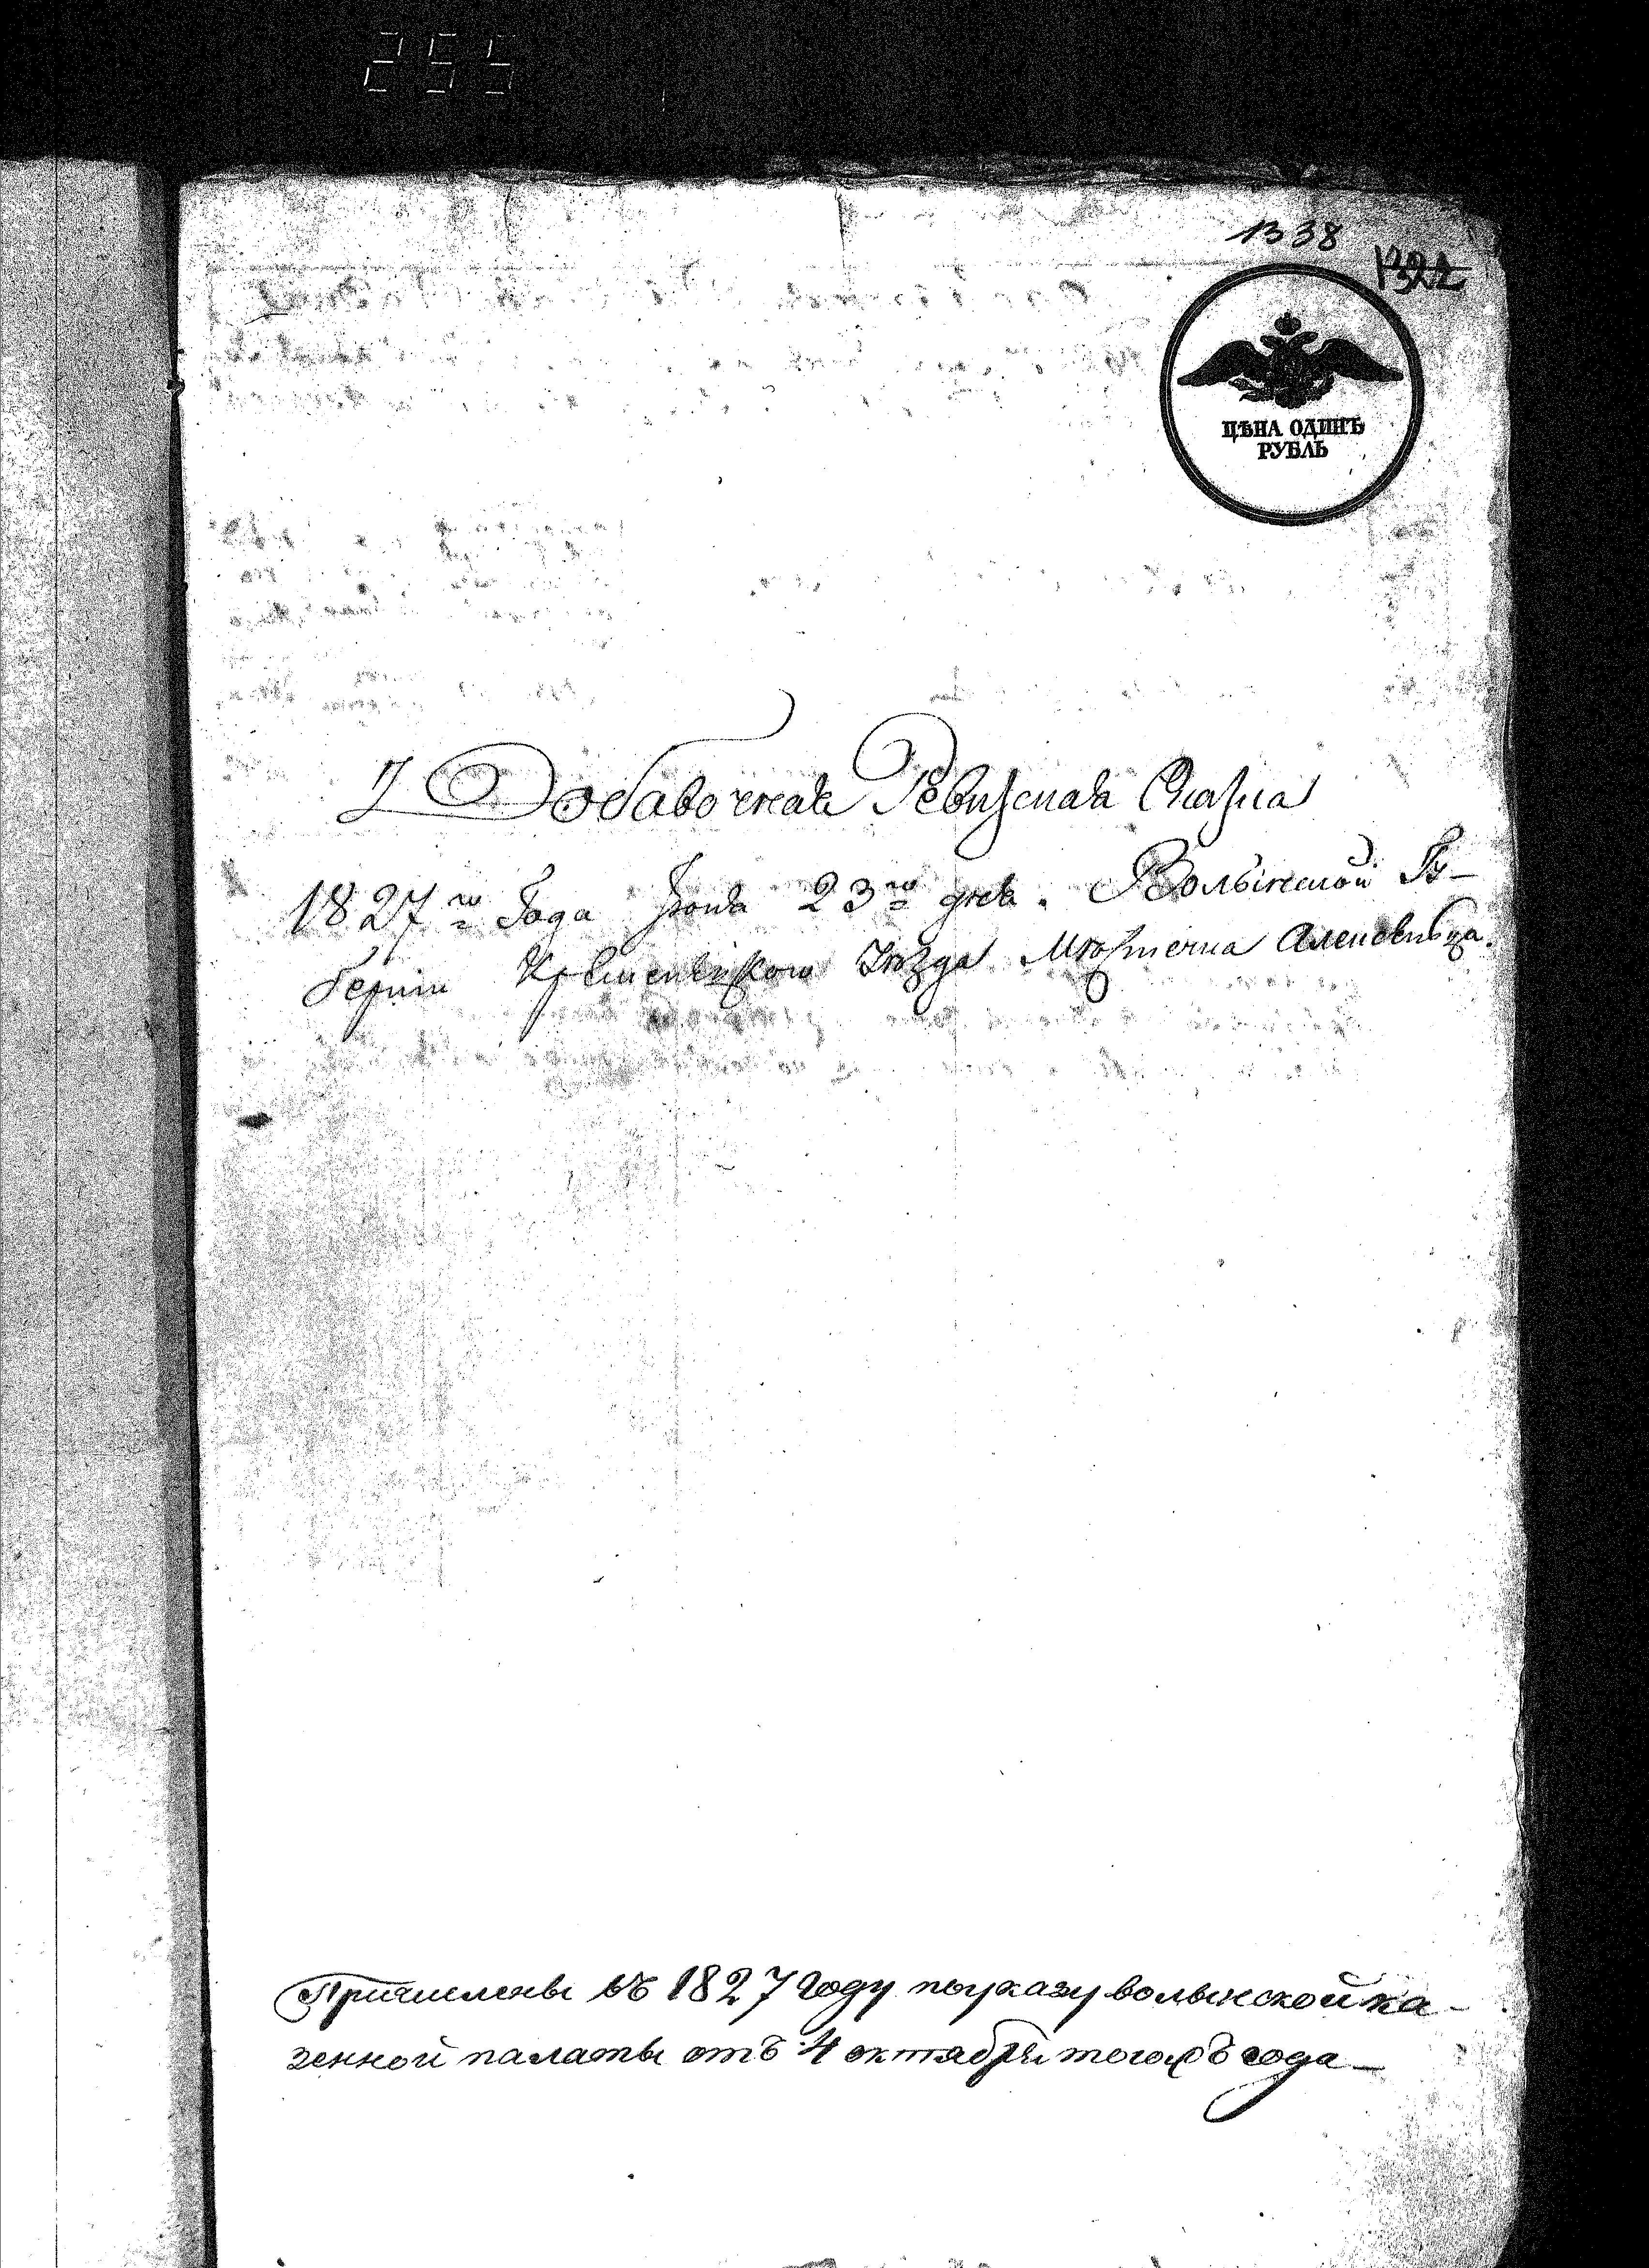 255
1338
1322
ЦѢНА ОДИНЪ
РУБЛЬ
Добавочная Ревизская Сказка
1827го Года Июня 23го дня. Волынской Гу-
берніи Кременецкого Уѣзда Местечка Алексвинца
Причислены въ 1827 году по указу волынской ка-
зенной палаты отъ 4 октября тогожъ года